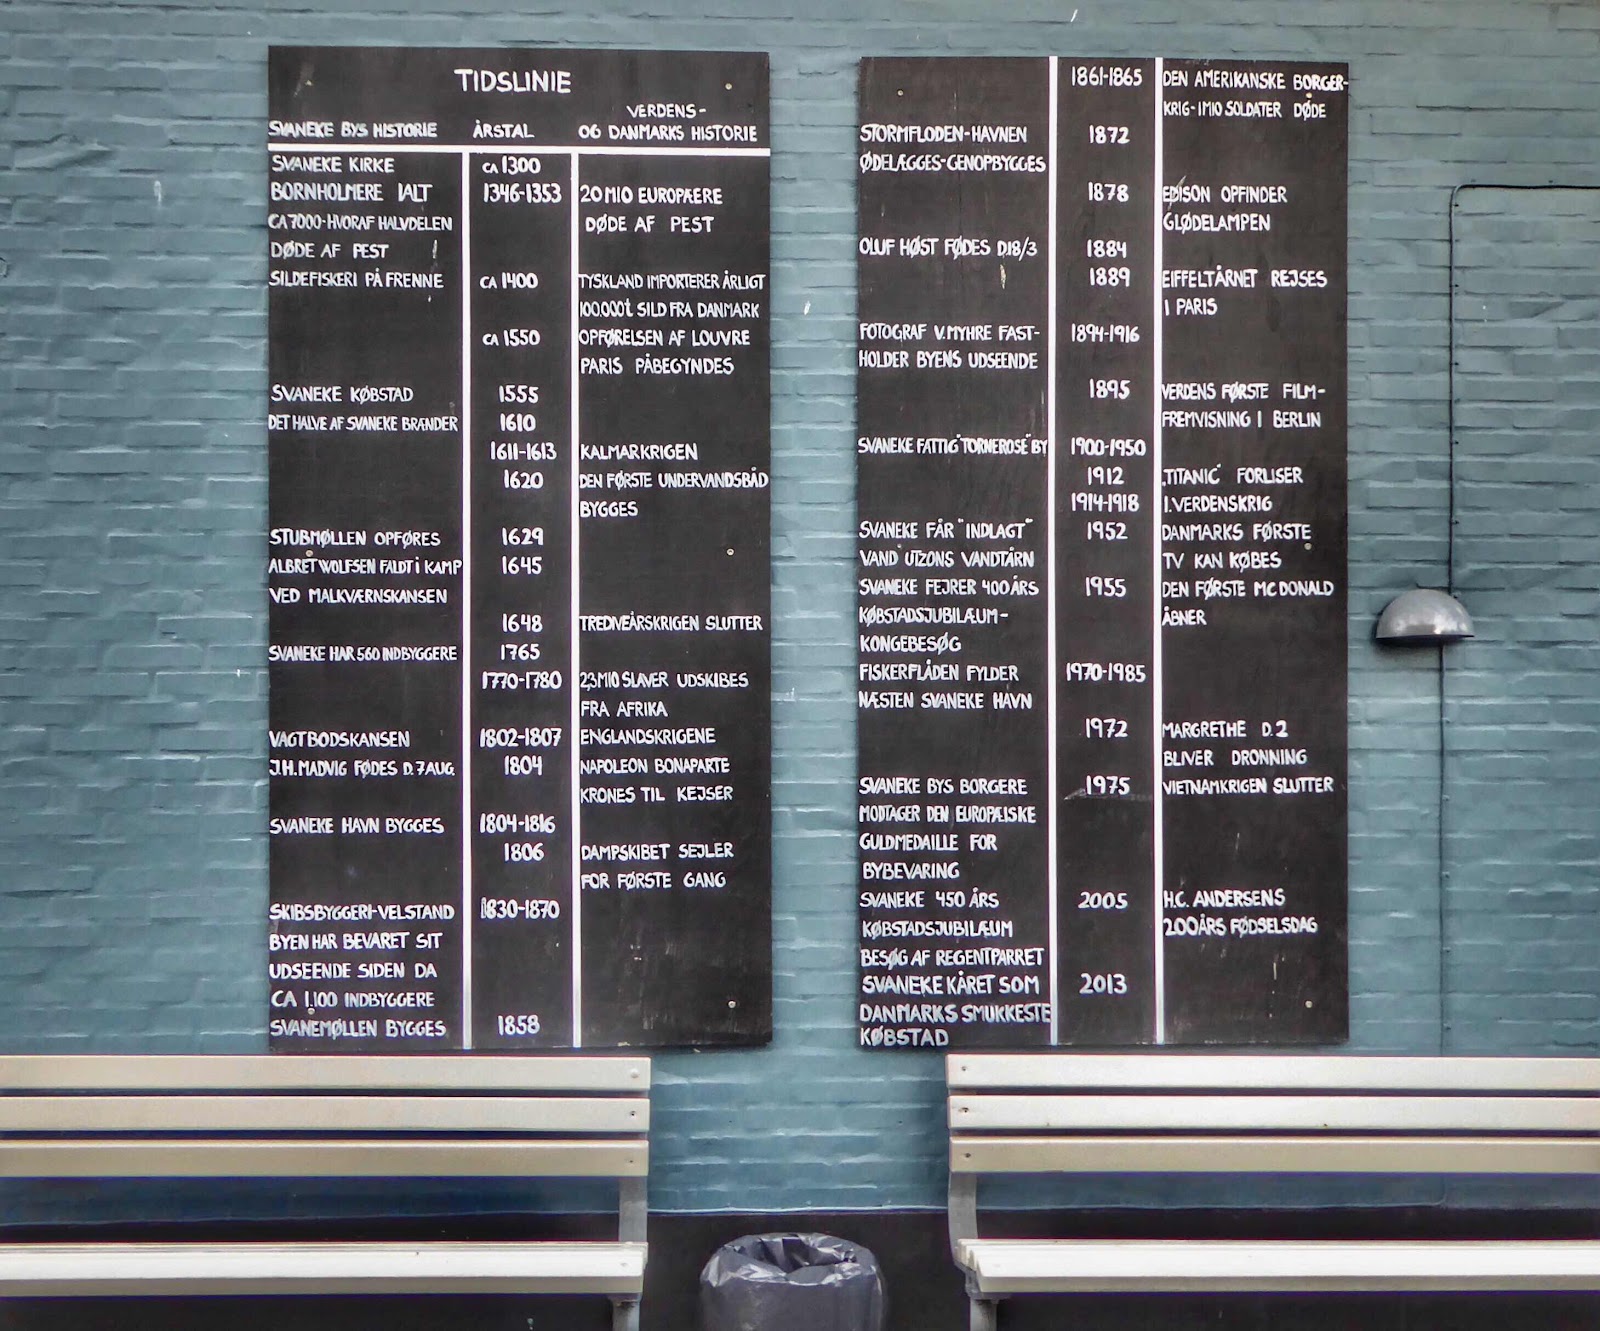 TIDSLINIE
SVANEKE BYS HISTORIE ÅRSTAL VERDENS-
OG DANMARKS HISTORIE
SVANEKE KIRKE CA 1300
BORNHOLMERE IALT 1346-1353 20 MIO EUROPÆERE
CA 7000-HVORAF HALVDELEN DØDE AF PEST
DØDE AF PEST
SILDEFISKERI PÅ FRENNE CA 1400 TYSKLAND IMPORTERER ÅRLIGT
100.000t SILD FRA DANMARK
CA 1550 OPFØRELSEN AF LOUVRE
PARIS PÅBEGYNDES
SVANEKE KØBSTAD 1555
DET HALVE AF SVANEKE BRÆNDER 1610
1611-1613 KALMARKRIGEN
1620 DEN FØRSTE UNDERVANDSBÅD
BYGGES
STUBMØLLEN OPFØRES 1629
ALBRET WOLFSEN FALDT i KAMP 1645
VED MALKVÆRNSKANSEN
1648 TREDIVEÅRSKRIGEN SLUTTER
SVANEKE HAR 560 INDBYGGERE 1765
1770-1780 2,3 MIO SLAVER UDSKIBES
FRA AFRIKA
VAGTBODSKANSEN 1802-1807 ENGLANDSKRIGENE
J.H. MADVIG FØDES D. 7 AUG. 1804 NAPOLEON BONAPARTE
KRONES TIL KEJSER
SVANEKE HAVN BYGGES 1804-1816
1806 DAMPSKIBET SEJLER
FOR FØRSTE GANG
SKIBSBYGGERI-VELSTAND 1830-1870
BYEN HAR BEVARET SIT
UDSEENDE SIDEN DA
CA 1.100 INDBYGGERE
SVANEMØLLEN BYGGES 1858
1861-1865 DEN AMERIKANSKE BORGER-
KRIG-1 MIO SOLDATER DØDE
STORMFLODEN-HAVNEN 1872
ØDELÆGGES-GENOPBYGGES
1878 EDISON OPFINDER
GLØDELAMPEN
OLUF HØST FØDES D.18/3 1884
1889 EIFFELTÅRNET REJSES
I PARIS
FOTOGRAF V. MYHRE FAST- 1894-1916
HOLDER BYENS UDSEENDE
1895 VERDENS FØRSTE FILM-
FREMVISNING I BERLIN
SVANEKE FATTIG "TORNEROSE" BY 1900-1950
1912 "TITANIC" FORLISER
1914-1918 1. VERDENSKRIG
SVANEKE FÅR "INDLAGT" 1952 DANMARKS FØRSTE
VAND UTZONS VANDTÅRN TV KAN KØBES
SVANEKE FEJRER 400 ÅRS 1955 DEN FØRSTE MC DONALD
KØBSTADSJUBILÆUM- ÅBNER
KONGEBESØG
FISKERFLÅDEN FYLDER 1970-1985
NÆSTEN SVANEKE HAVN
1972 MARGRETHE D. 2
BLIVER DRONNING
SVANEKE BYS BORGERE 1975 VIETNAMKRIGEN SLUTTER
MODTAGER DEN EUROPÆISKE
GULDMEDAILLE FOR
BYBEVARING
SVANEKE 450 ÅRS 2005 H.C. ANDERSENS
KØBSTADSJUBILÆUM 200 ÅRS FØDSELSDAG
BESØG AF REGENTPARRET
SVANEKE KÅRET SOM 2013
DANMARKS SMUKKESTE
KØBSTAD